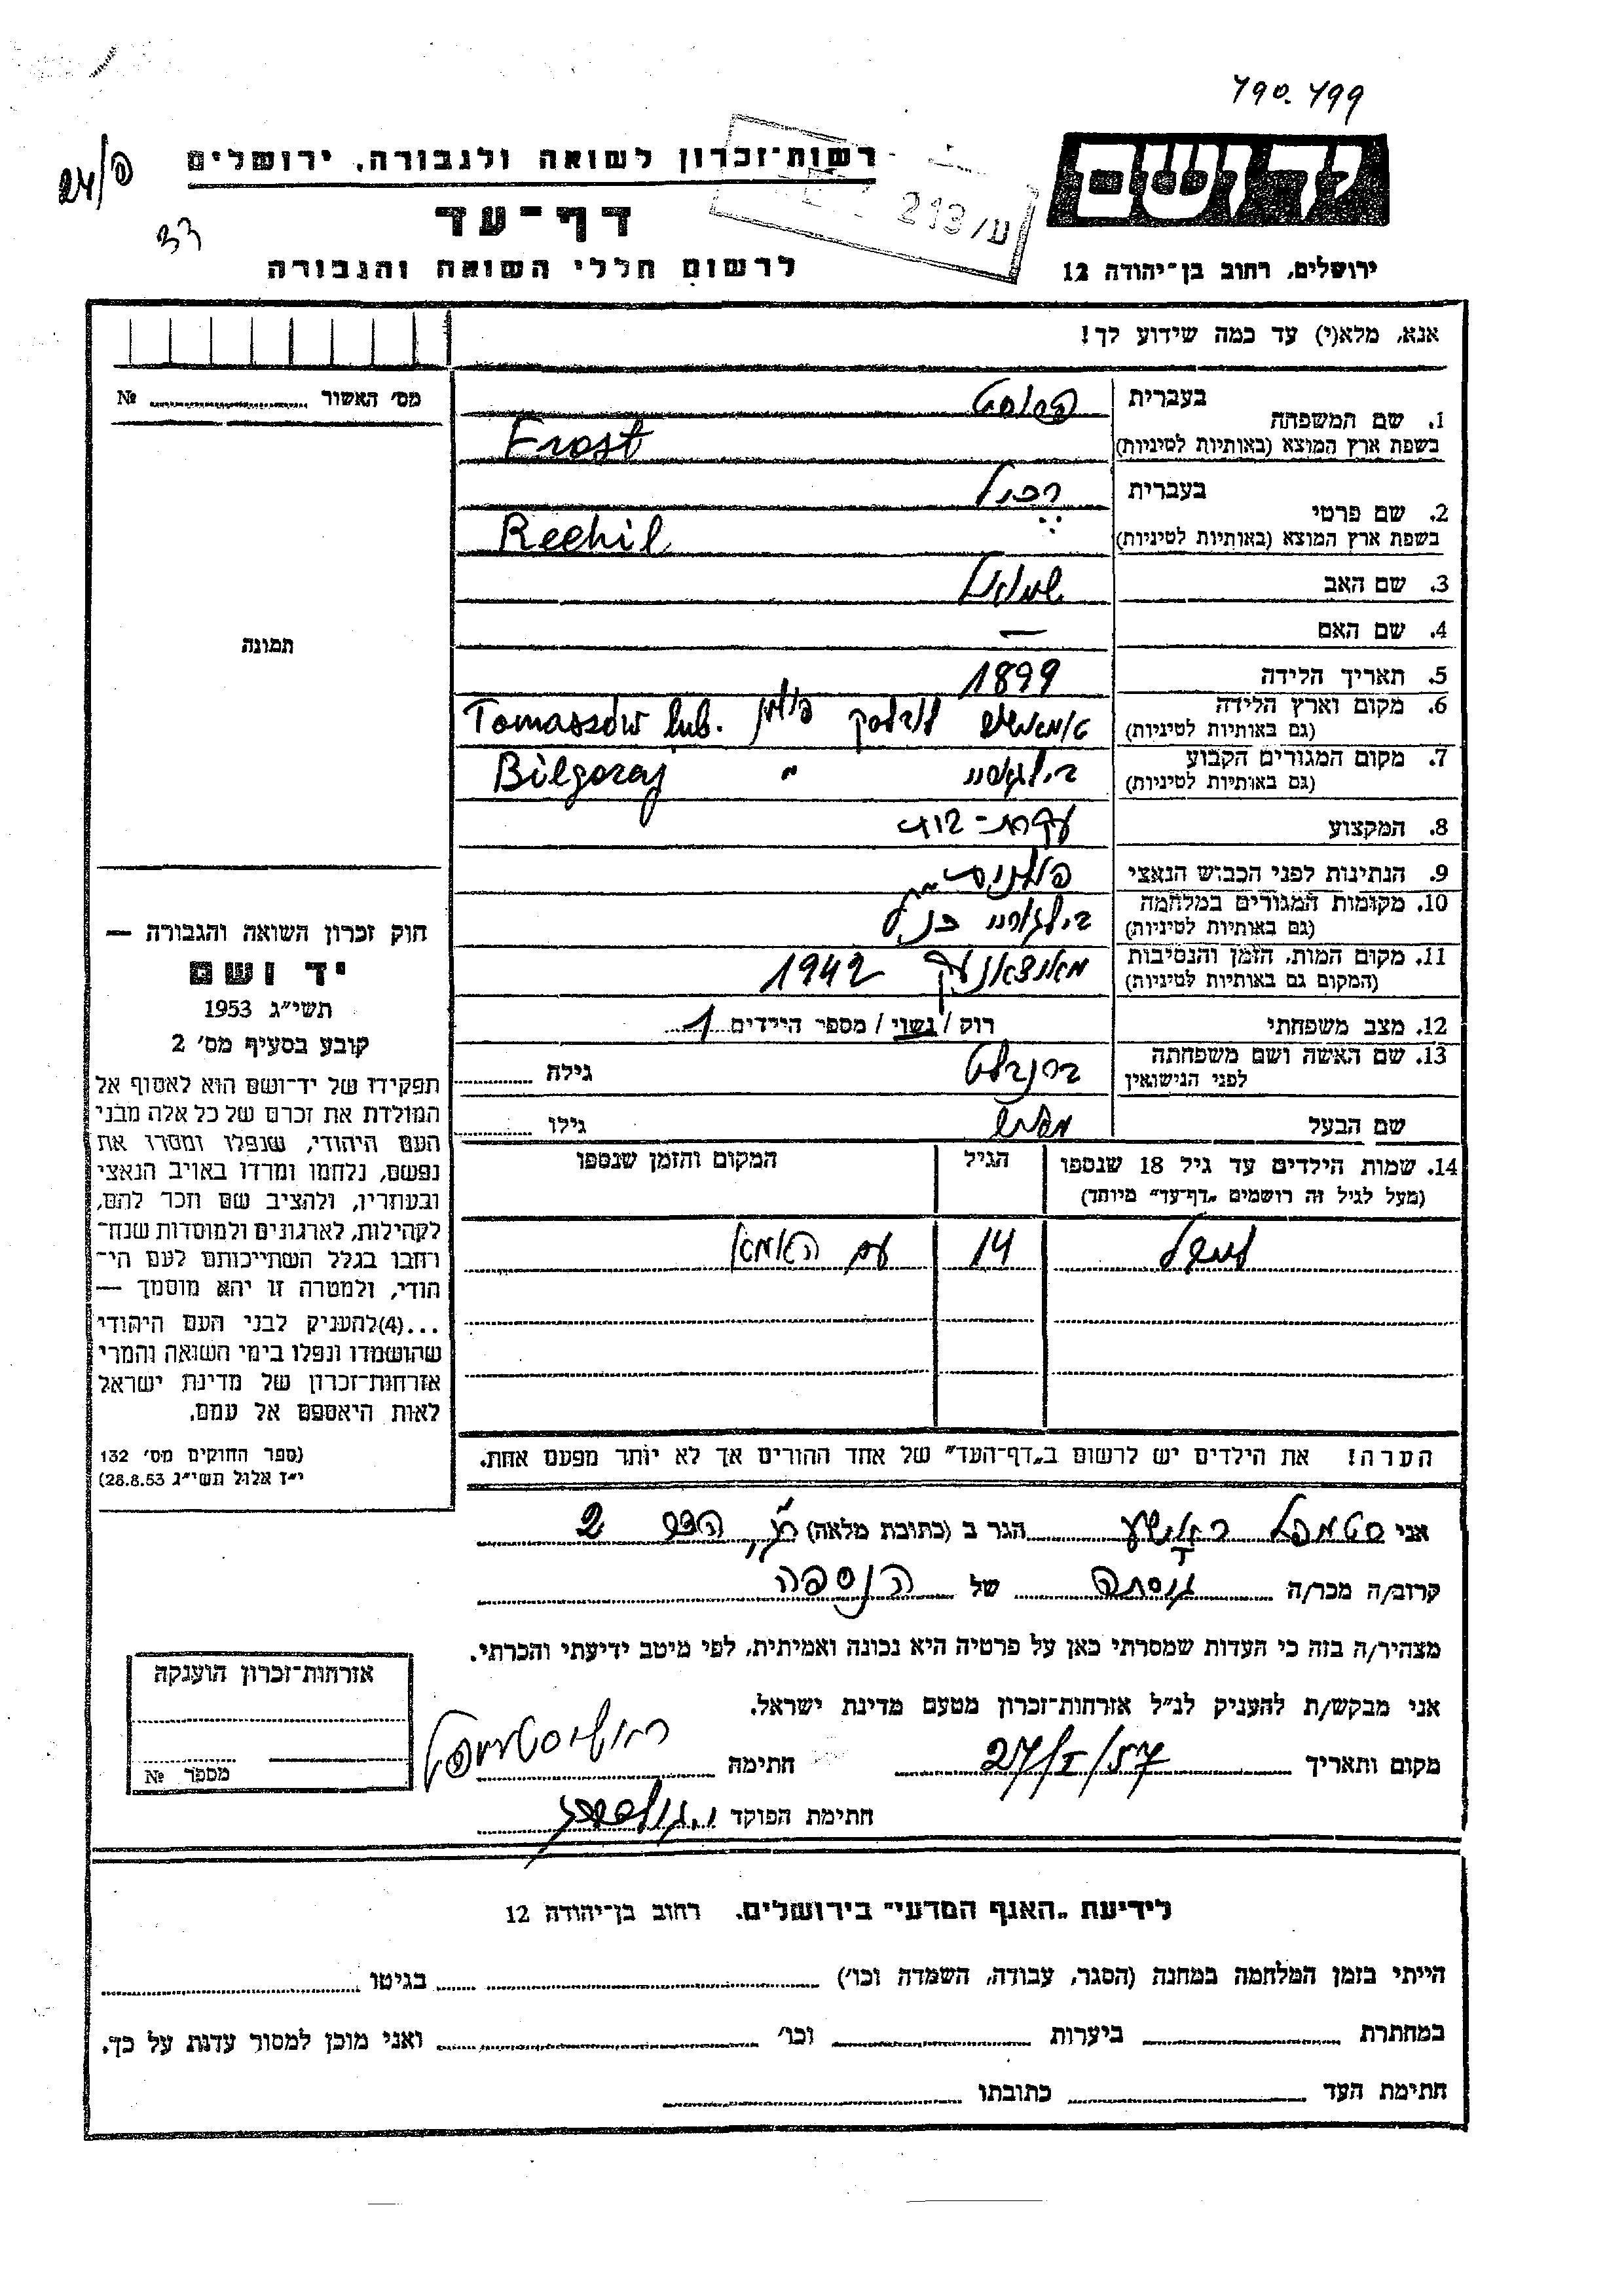 490.499
רשות־זכרון לשואה ולגבורה, ירושלים
דף־עד
לרשום חללי השואה והגבורה
213/ע
יד ושם
ירושלים, רחוב בן־יהודה 12
אנא, מלא(י) עד כמה שידוע לך!
מס׳ האשור № 
תמונה
חוק זכרון השואה והגבורה —
יד ושם
תשי״ג 1953
קובע בסעיף מס׳ 2
תפקידו של יד־ושם הוא לאסוף אל
המולדת את זכרם של כל אלה מבני
העם היהודי, שנפלו ומסרו את
נפשם, נלחמו ומרדו באויב הנאצי
ובעוזריו, ולהציב שם וזכר להם,
לקהילות, לארגונים ולמוסדות שנח־
רבו בגלל השתייכותם לעם הי־
הודי, ולמטרה זו יהא מוסמך —
...(4)להעניק לבני העם היהודי
שהושמדו ונפלו בימי השואה והמרי
אזרחות־זכרון של מדינת ישראל
לאות היאספם אל עמם.
(ספר החוקים מס׳ 132
י״ז אלול תשי״ג 28.8.53)
1. שם המשפחה
בעברית
בשפת ארץ המוצא (באותיות לטיניות) Frost
2. שם פרטי
בעברית רכיל
בשפת ארץ המוצא (באותיות לטיניות) Rechil
3. שם האב
4. שם האם —
5. תאריך הלידה 1899
6. מקום וארץ הלידה פולין Tomaszów lub.
(גם באותיות לטיניות)
7. מקום המגורים הקבוע בילגאריי " Biłgoraj
(גם באותיות לטיניות)
8. המקצוע עקרת-בית
9. הנתינות לפני הכבוש הנאצי פולנית
10. מקומות המגורים במלחמה בילגאריי כנ״ל
(גם באותיות לטיניות)
11. מקום המות, הזמן והנסיבות 1942
(המקום גם באותיות לטיניות)
12. מצב משפחתי רוק / נשוי / מספר הילדים 1
13. שם האשה ושם משפחתה גילה
לפני הנישואין
שם הבעל גילו
14. שמות הילדים עד גיל 18 שנספו הגיל המקום והזמן שנספו
(מעל לגיל זה רושמים „דף־עד״ מיוחד)
14 עם האמא
הערה! את הילדים יש לרשום ב„דף־העד״ של אחד ההורים אך לא יותר מפעם אחת.
אני סטמפל הגר ב (כתובת מלאה) 2
קרוב/ה מכר/ה גיסתה של הנספה
מצהיר/ה בזה כי העדות שמסרתי כאן על פרטיה היא נכונה ואמיתית, לפי מיטב ידיעתי והכרתי.
אני מבקש/ת להעניק לנ״ל אזרחות־זכרון מטעם מדינת ישראל.
מקום ותאריך 27/I/57 חתימה
חתימת הפוקד
אזרחות־זכרון הוענקה
מספר №
לידיעת „האגף המדעי״ בירושלים. רחוב בן־יהודה 12
הייתי בזמן המלחמה במחנה (הסגר, עבודה, השמדה וכו׳) בגיטו
במחתרת ביערות וכו׳ ואני מוכן למסור עדות על כך.
חתימת העד כתובתו